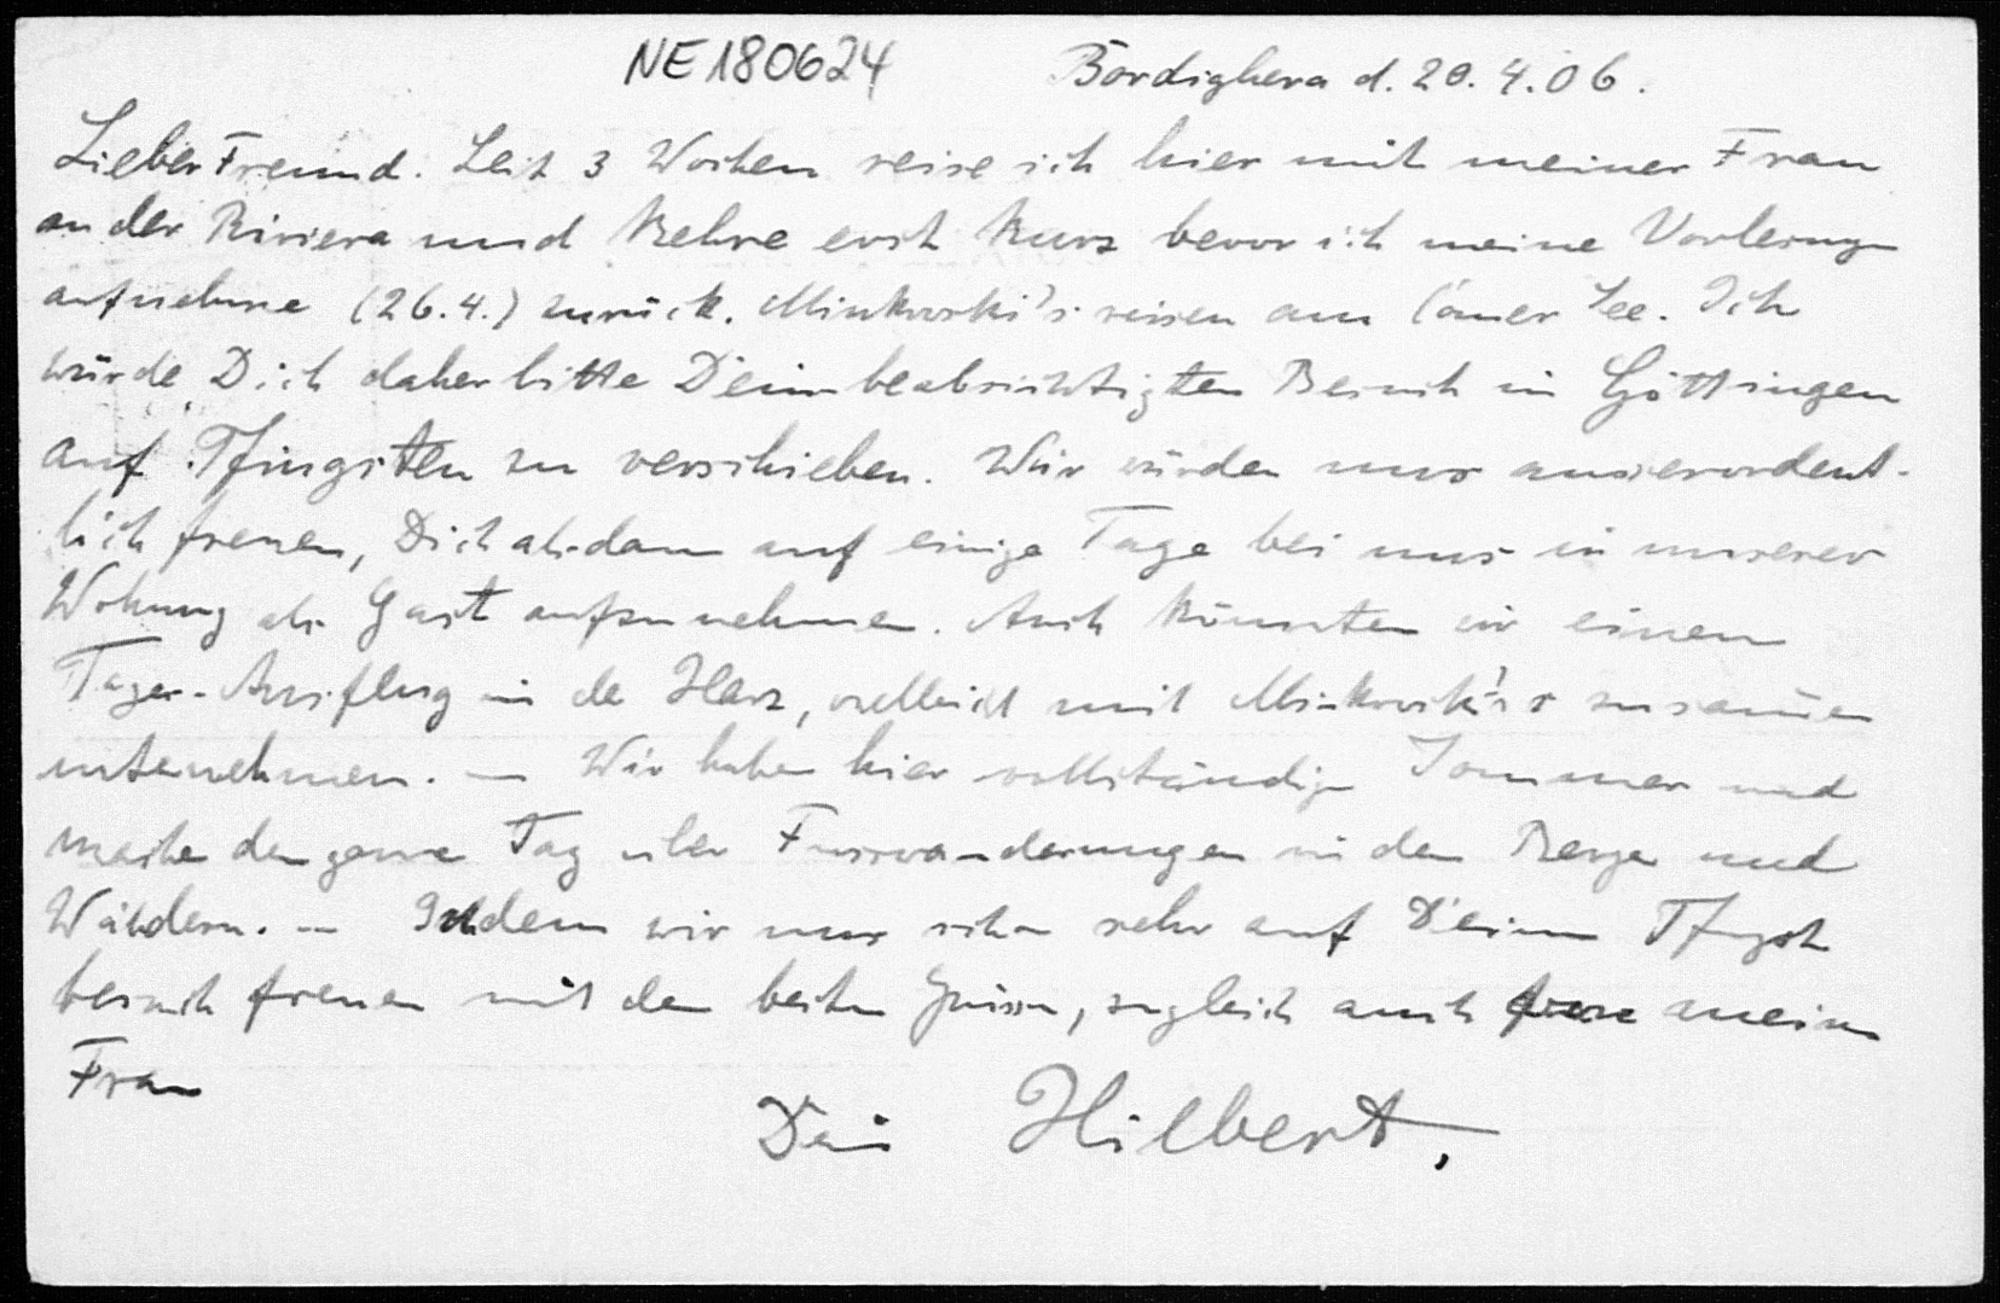 NE180624 Bordighera d. 20.4.06.
Lieber Freund. Seit 3 Wochen reise ich hier mit meiner Frau
an der Riviera und kehre erst kurz bevor ich meine Vorlesungen
aufnehme (26.4.) zurück. Minkowski's reisen am Comer See. Ich
würde Dich daher bitte Deinen beabsichtigten Besuch in Göttingen
auf Pfingsten zu verschieben. Wir würden uns ausserordent-
lich freuen, Dich alsdann auf einige Tage bei uns in unserer
Wohnung als Gast aufzunehmen. Auch könnten wir einen
Tages-Ausflug in de Harz, vielleicht mit Minkowski's zusam̄en
unternehmen. — Wir haben hier vollständigen Sommer und
machen den ganzen Tag über Fusswanderungen in den Bergen und
Wäldern. — Indem wir uns schon sehr auf Deinen Pfingst
besuch freuen mit den besten Grüssen, zugleich auch meiner
Frau
Dein Hilbert.